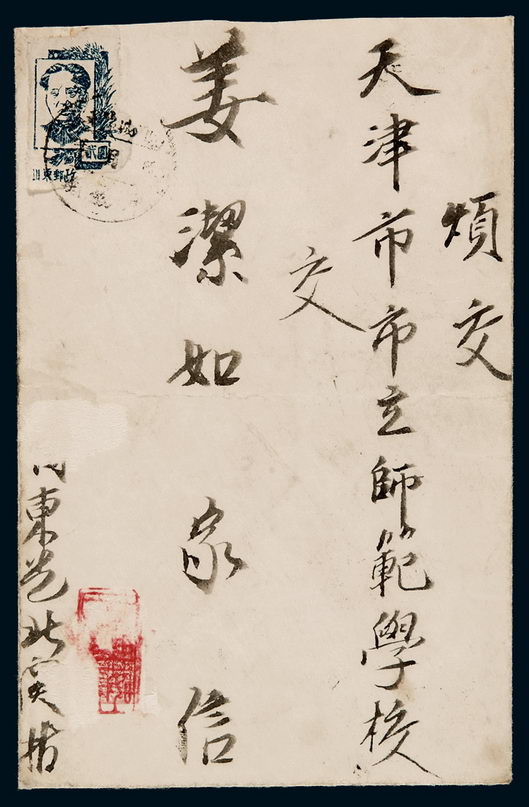 煩交
天津市市立師範學校
交
姜潔如家信
東
川東郵政
貳圓